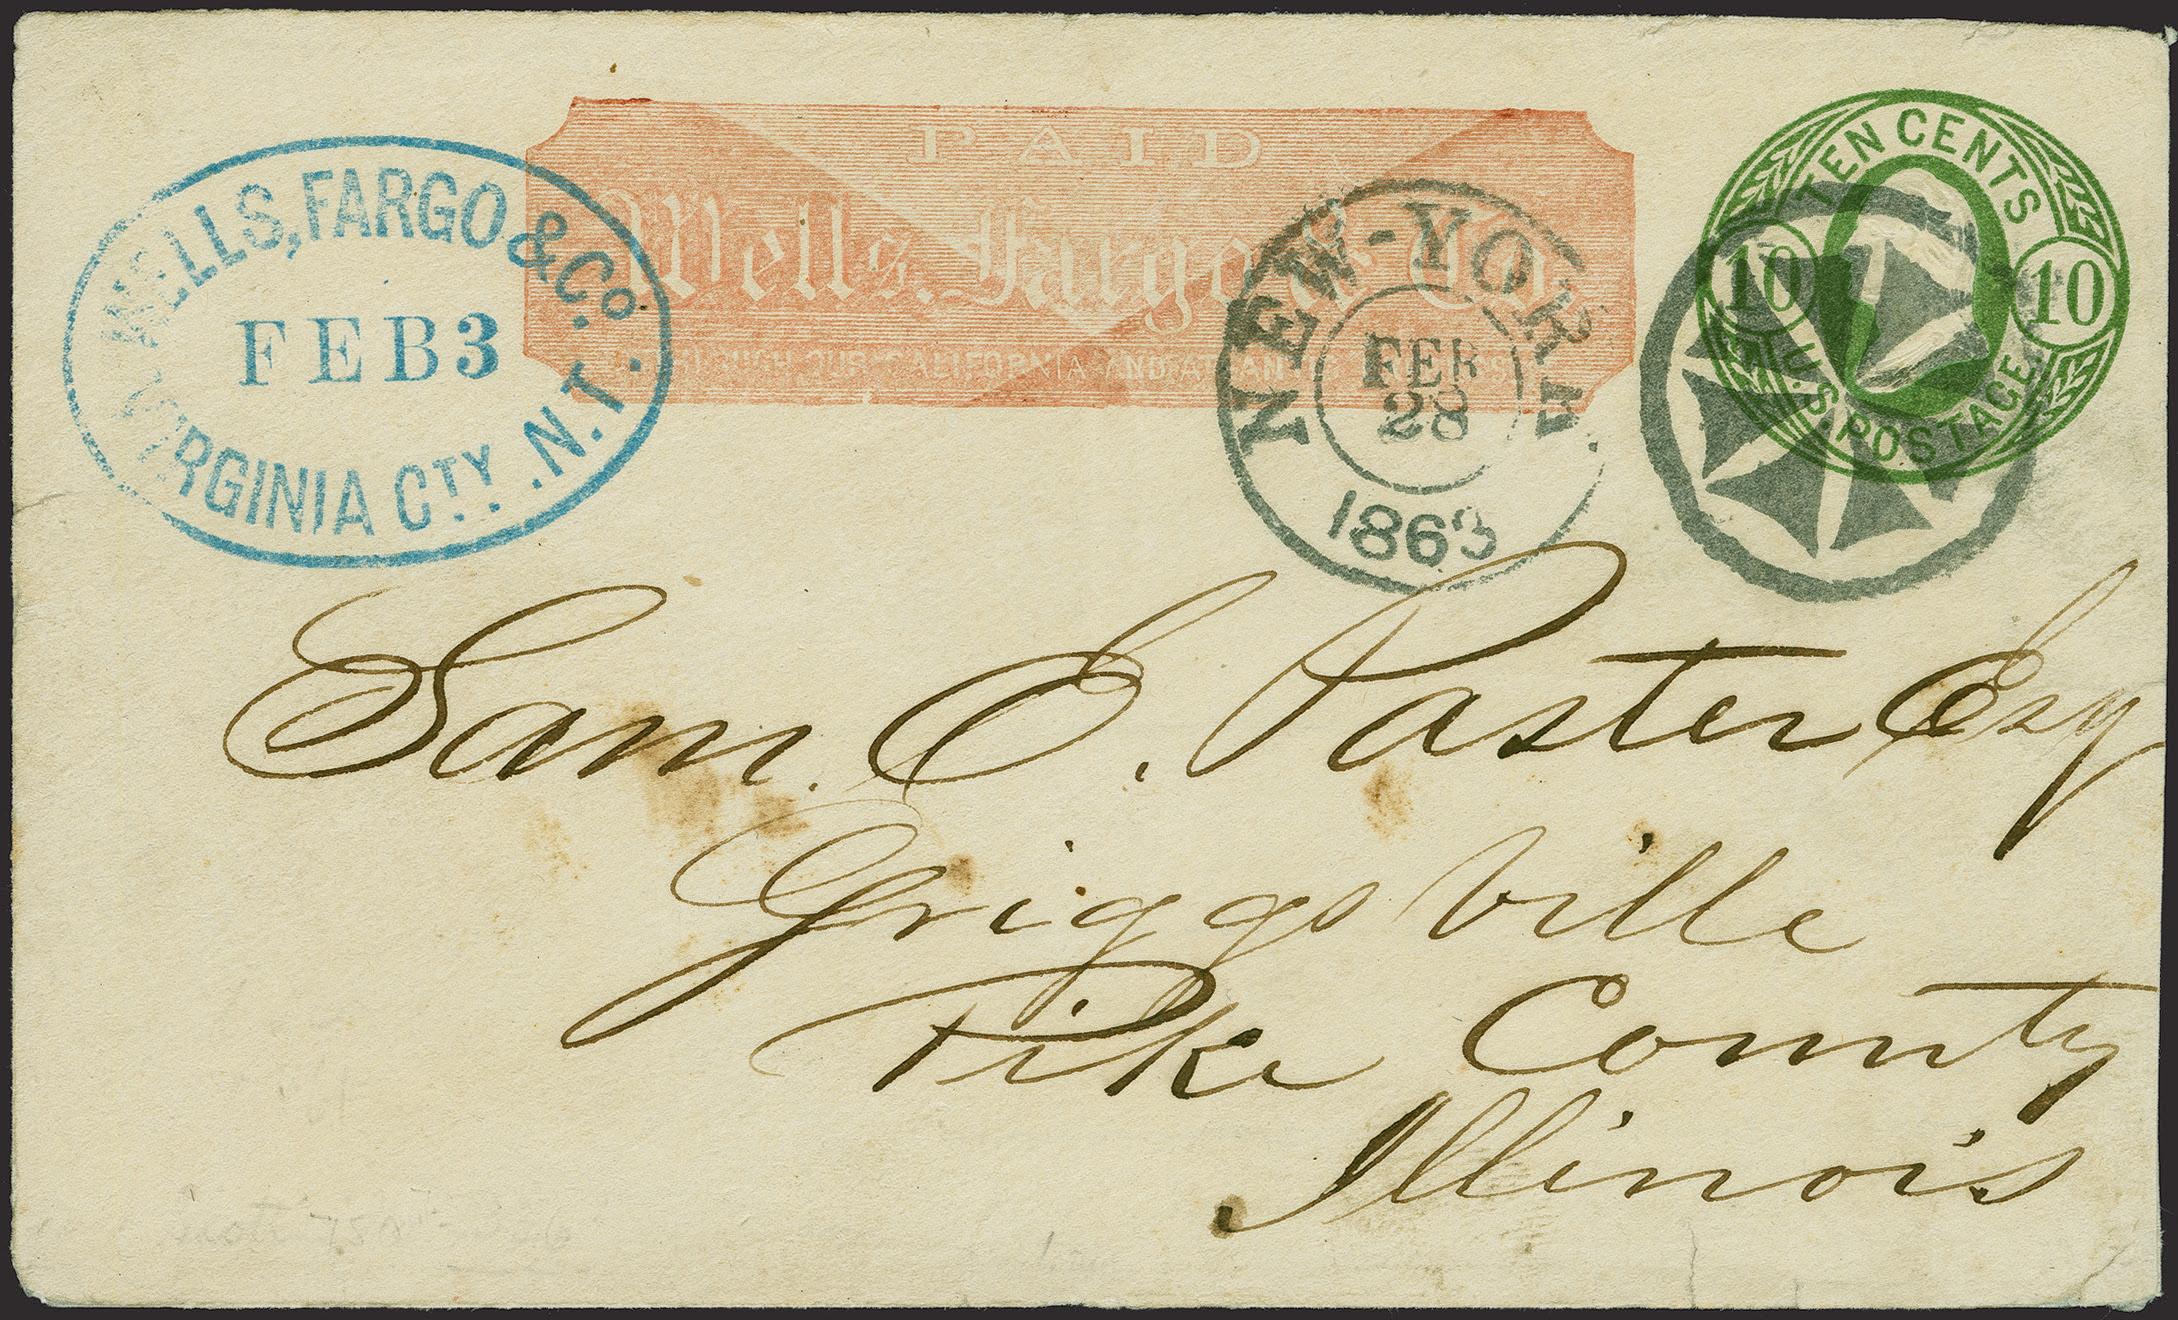 WELLS, FARGO & Co.
FEB 3
VIRGINIA CTY. N.T.
PAID
Wells, Fargo & Co.
THROUGH OUR CALIFORNIA AND ATLANTIC EXPRESS
NEW-YORK
FEB
28
1863
TEN CENTS
10 10
U.S. POSTAGE
Sam. S. Paster Esq
Griggsville
Pike County
Illinois